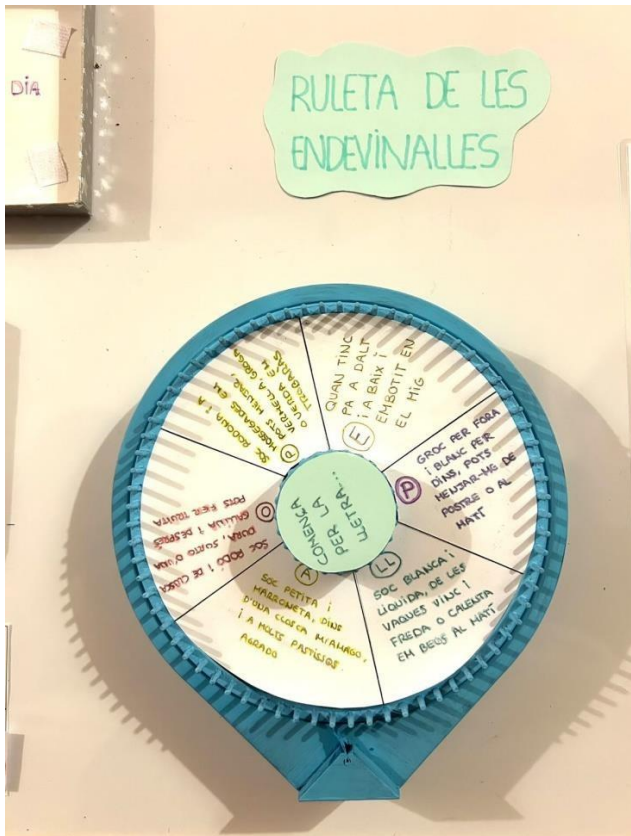 DIA
RULETA DE LES
ENDEVINALLES
COMENÇA
PER LA
LLETRA...
E
QUAN TINC
PA A DALT
I A BAIX I
EMBOTIT EN
EL MIG
P
GROC PER FORA
I BLANC PER
DINS, POTS
MENJAR-ME DE
POSTRE O AL
MATÍ
LL
SOC BLANCA I
LÍQUIDA, DE LES
VAQUES VINC I
FREDA O CALENTA
EM BEUS AL MATÍ
A
SOC PETITA I
MARRONETA, DINS
D'UNA CLOSCA M'AMAGO,
I A MOLTS PASTISSOS
AGRADO
O
SOC RODÓ I DE CLOSCA
DURA, SURTO D'UNA
GALLINA I DESPRÉS
POTS FER TRUITA
P
SOC RODONA I A
MOSSEGADES EM
POTS MENJAR,
VERMELLA, GROGA
O VERDA EM
TROBARÀS